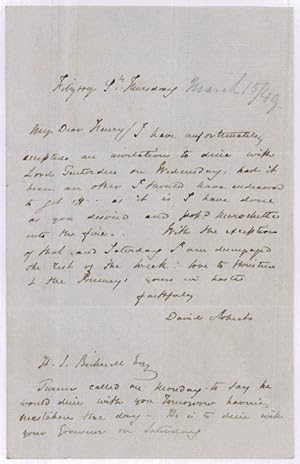 Fitzroy St. Thursday March 15/49
My Dear Henry / I have unfortunately
accepted an invitation to dine with
Lord on Wednesday, had it
been an other I should have endeavord
to get off. as it is I have done
as you desired and Marochetti
into the fire. With the exception
of that and Saturday I am disengaged
the rest of the Week. love to
& the yours in haste
faithfully
David Roberts
H. S. Bicknell Esq
Turner called on Monday to say he
would dine with you Tomorrow having
mistaken the day - He is to dine with
your Governor on Saturday